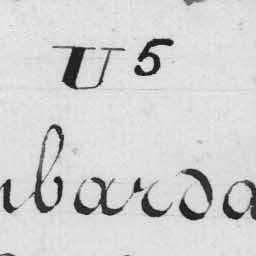 U 5
mbarda